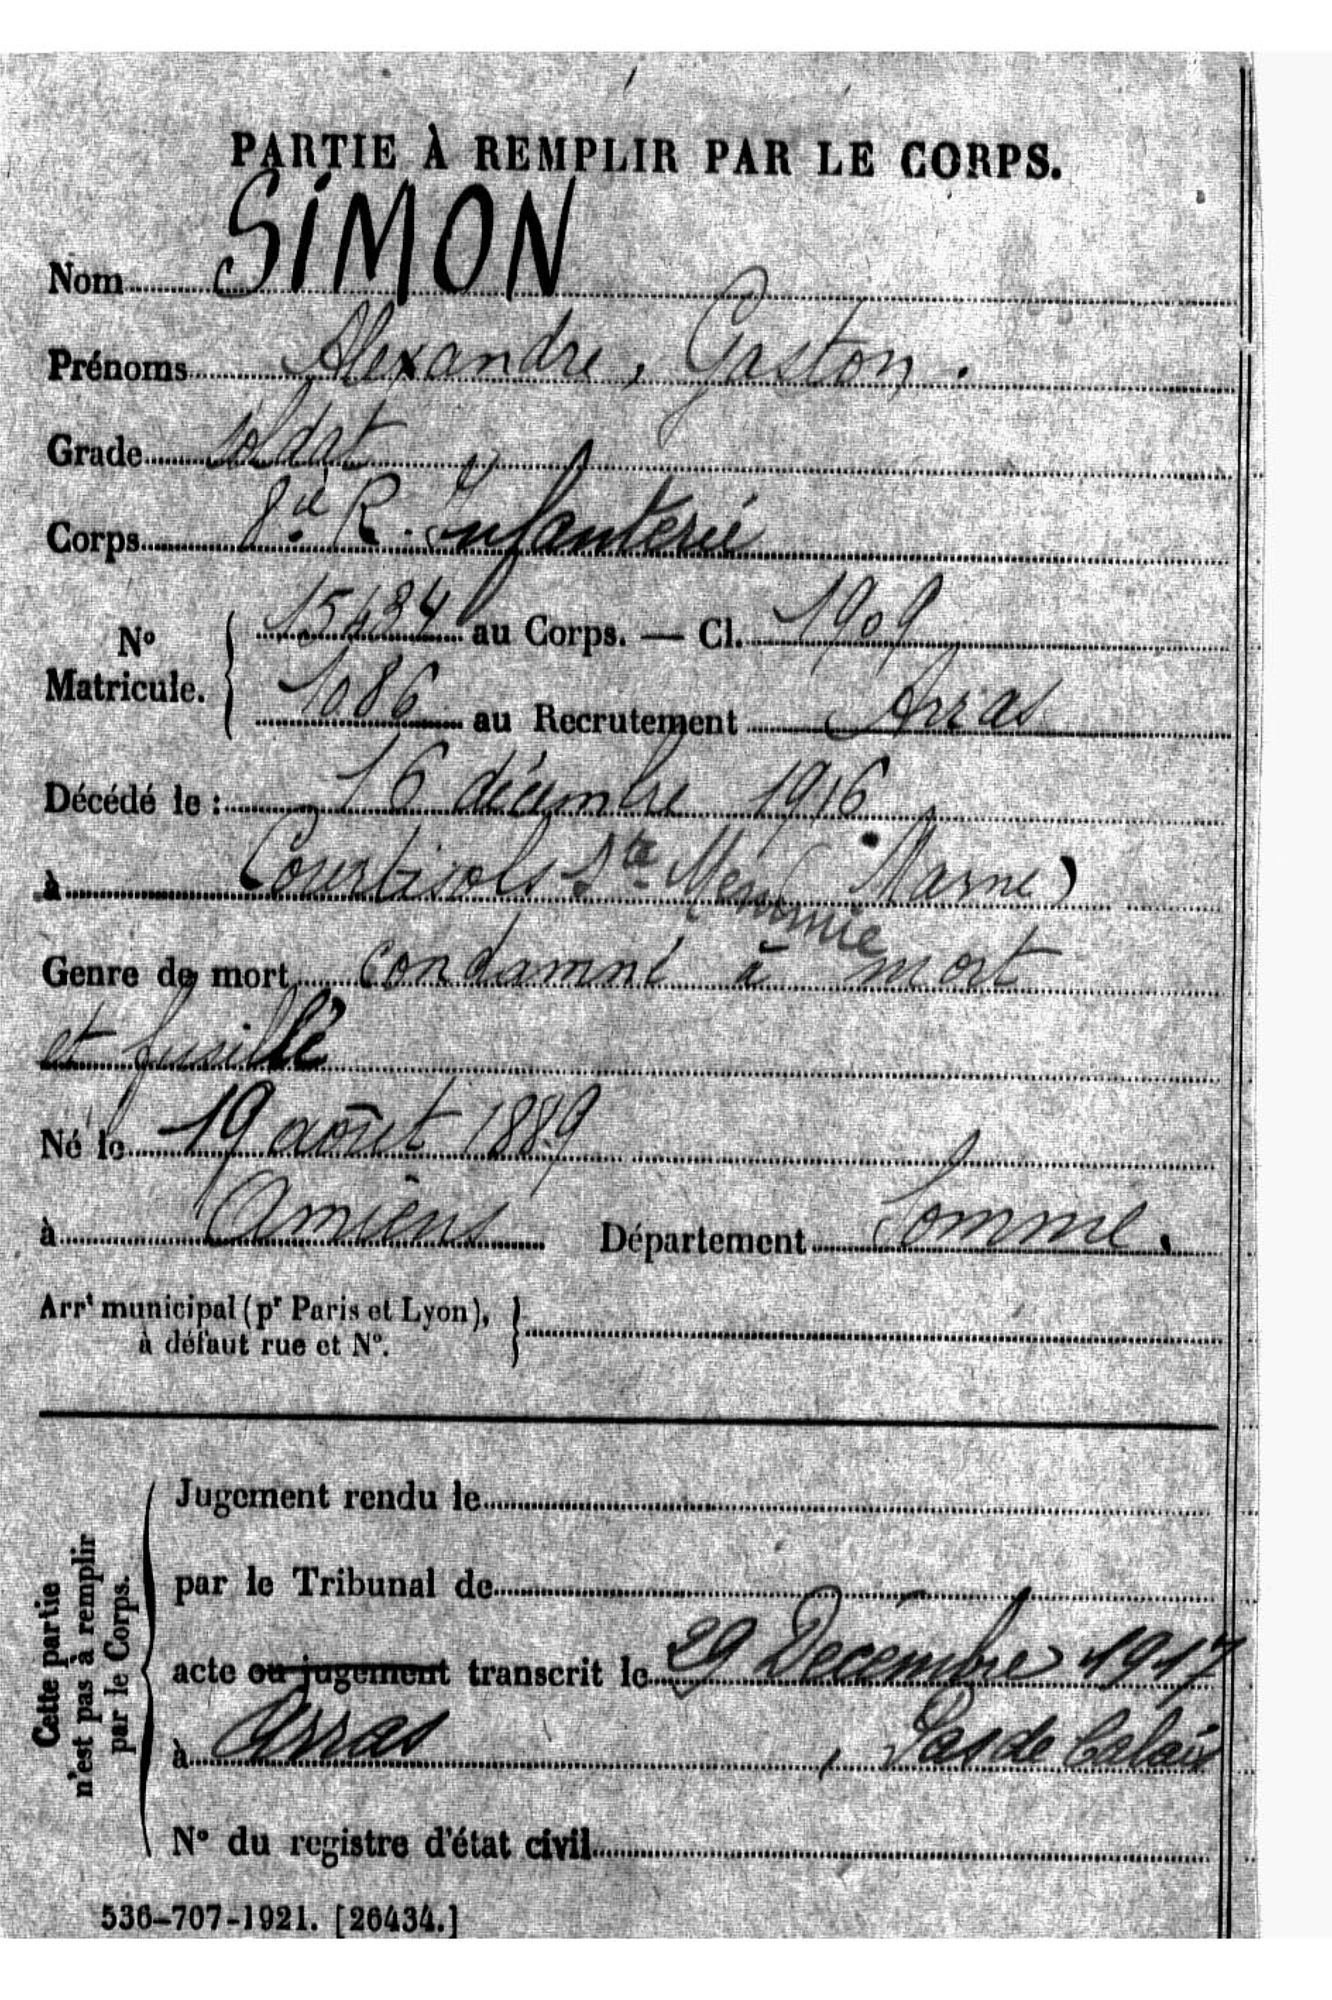 PARTIE À REMPLIR PAR LE CORPS.
Nom SIMON
Prénoms Alexandre, Gaston.
Grade soldat
Corps 8e R. Infanterie
No Matricule. 15434 au Corps. — Cl. 1909
1086 au Recrutement Arras
Décédé le : 16 décembre 1916
à Courtisols Ste Memmie Marne)
Genre de mort condamné à mort
et fusillé
Né le 19 août 1889
à Amiens Département Somme.
Arrt municipal (pr Paris et Lyon),
à défaut rue et No.
Cette partie
n'est pas à remplir
par le Corps.
Jugement rendu le
par le Tribunal de
acte ou jugement transcrit le 29 Décembre 1917
à Arras, Pas de Calais
No du registre d'état civil
536-707-1921. [26434.]